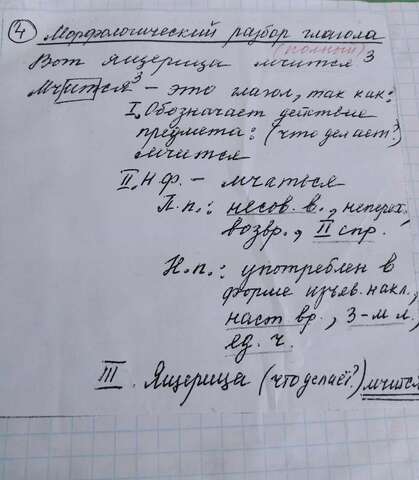 4 Морфологический разбор глагола
(полный)
Вот ящерица мчится³
Мчится³ – это глагол, так как:
I. Обозначает действие
предмета: (что делает?)
мчится
II. Н.ф. – мчаться
П.п.: несов.в., неперех.,
возвр., II спр.
Н.п.: употреблен в
форме изъяв. накл.,
наст вр., 3-м л.,
ед. ч.
III. Ящерица (что делает?) мчится